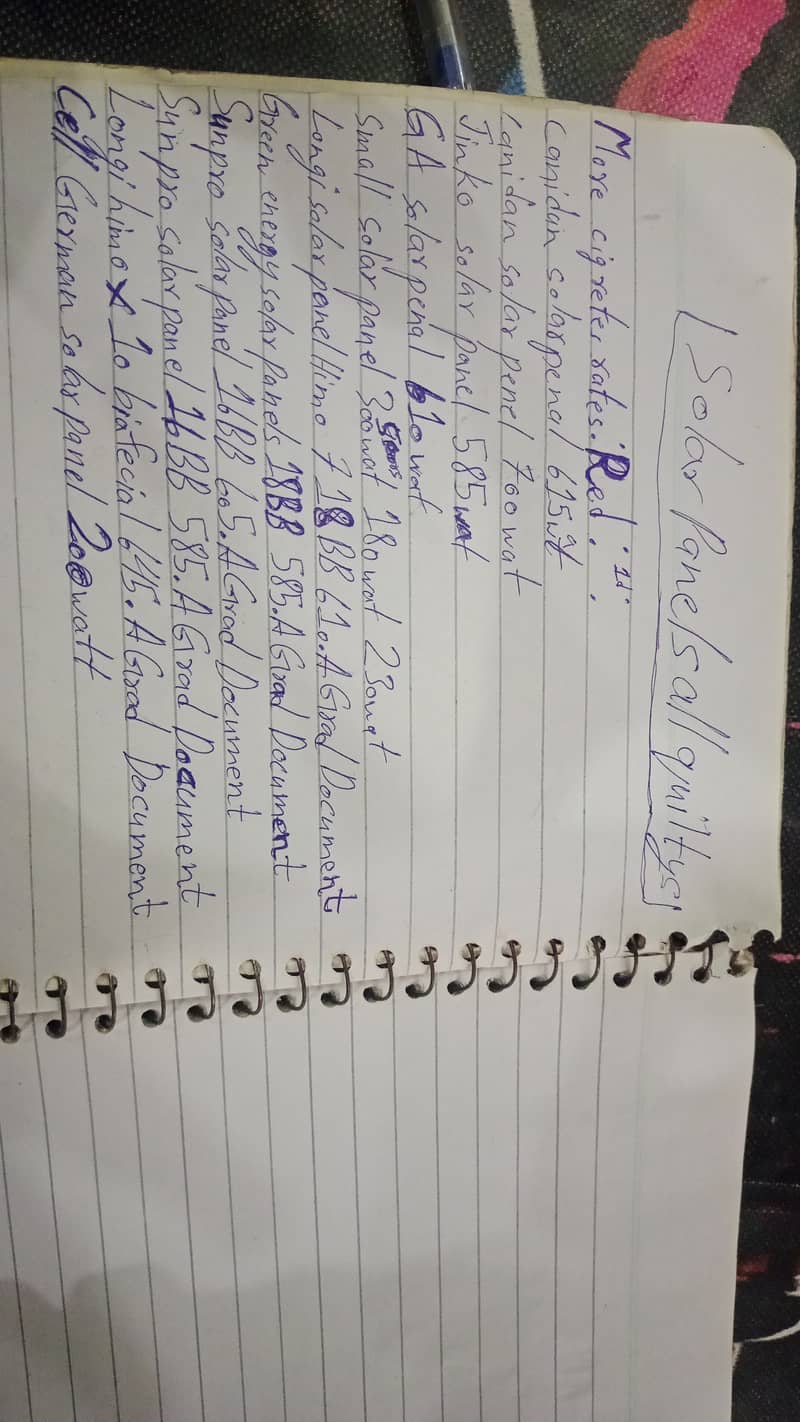 Solar Panels all quiltys
More cigreter rates. Red. "11".
Canidan solar penal 615w
Canidan solar penel 700wat
Jinko solar panel 585wat
GA solar penal 610wat
Small solar panel 300wat 180wat 230wat
Longi solar panel Himo 7 18BB 610.A Grad Document
Green energy solar Panels 18BB 585.A Grad Document
Sunpro solar panel 16BB 605.A Grad Document
Sunpro solar panel 16BB 585.A Grad Document
Longi himo X 10 biafecial 645.A Grad Document
Cell German solar panel 200watt